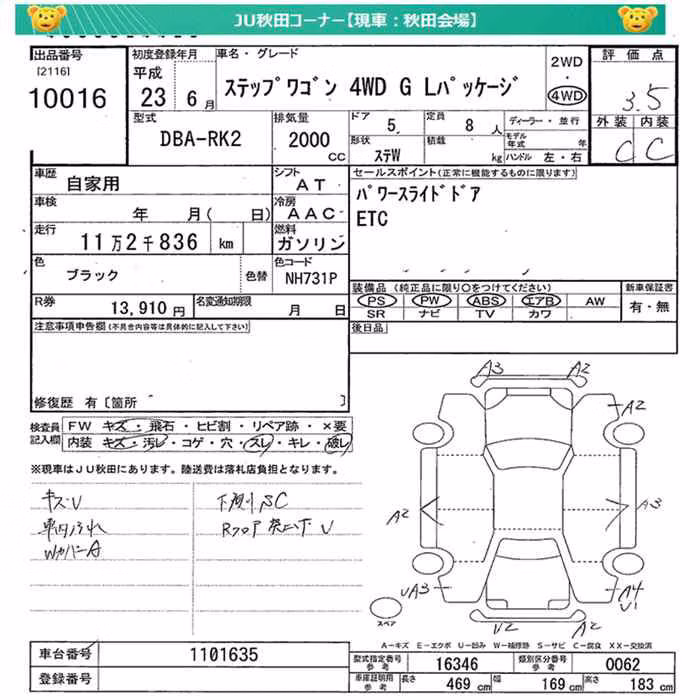 JU秋田コーナー【現車：秋田会場】
出品番号
[2116]
10016
初度登録年月
平成
23 6月
車名・グレード
ステップワゴン 4WD G Lパッケージ
2WD
・
4WD
評価点
3.5
外装 内装
C C
型式
DBA-RK2
排気量
2000
CC
ドア
5
定員
8 人
形状
ステW
積載
kg
ディーラー・並行
モデル年式 年
ハンドル 左・右
車歴
自家用
シフト
AT
車検
年 月( 日)
冷房
AAC
走行
11万2千836 km
燃料
ガソリン
色
ブラック
色替
色コード
NH731P
R券
13,910 円
名変通知期限
月 日
セールスポイント(正常に機能するものに限ります)
パワースライドドア
ETC
装備品 (純正品に限り○をつけてください)
PS PW ABS エアB AW
SR ナビ TV カワ
新車保証書
有・無
後日品
注意事項申告欄(不具合内容等は具体的に記入して下さい)
修復歴 有〔箇所 〕
検査員
記入欄
FW キズ・飛石・ヒビ割・リペア跡・×要
内装 キズ・汚レ・コゲ・穴・スレ・キレ・破レ
※現車はJU秋田にあります。陸送費は落札店負担となります。
キズU
車内汚れ
WカバーA
下廻りSC
Rフロア 突上下 U
A3 A2
A2
A2 A3
UA3 A4
U1
U2 A2
スペア
A−キズ E−エクボ U−凹み W−補修跡 S−サビ C−腐食 XX−交換済
車台番号
1101635
登録番号
型式指定番号
参考
16346
類別区分番号
参考
0062
車庫証明用
参考
長さ 469 cm
幅 169 cm
高さ 183 cm